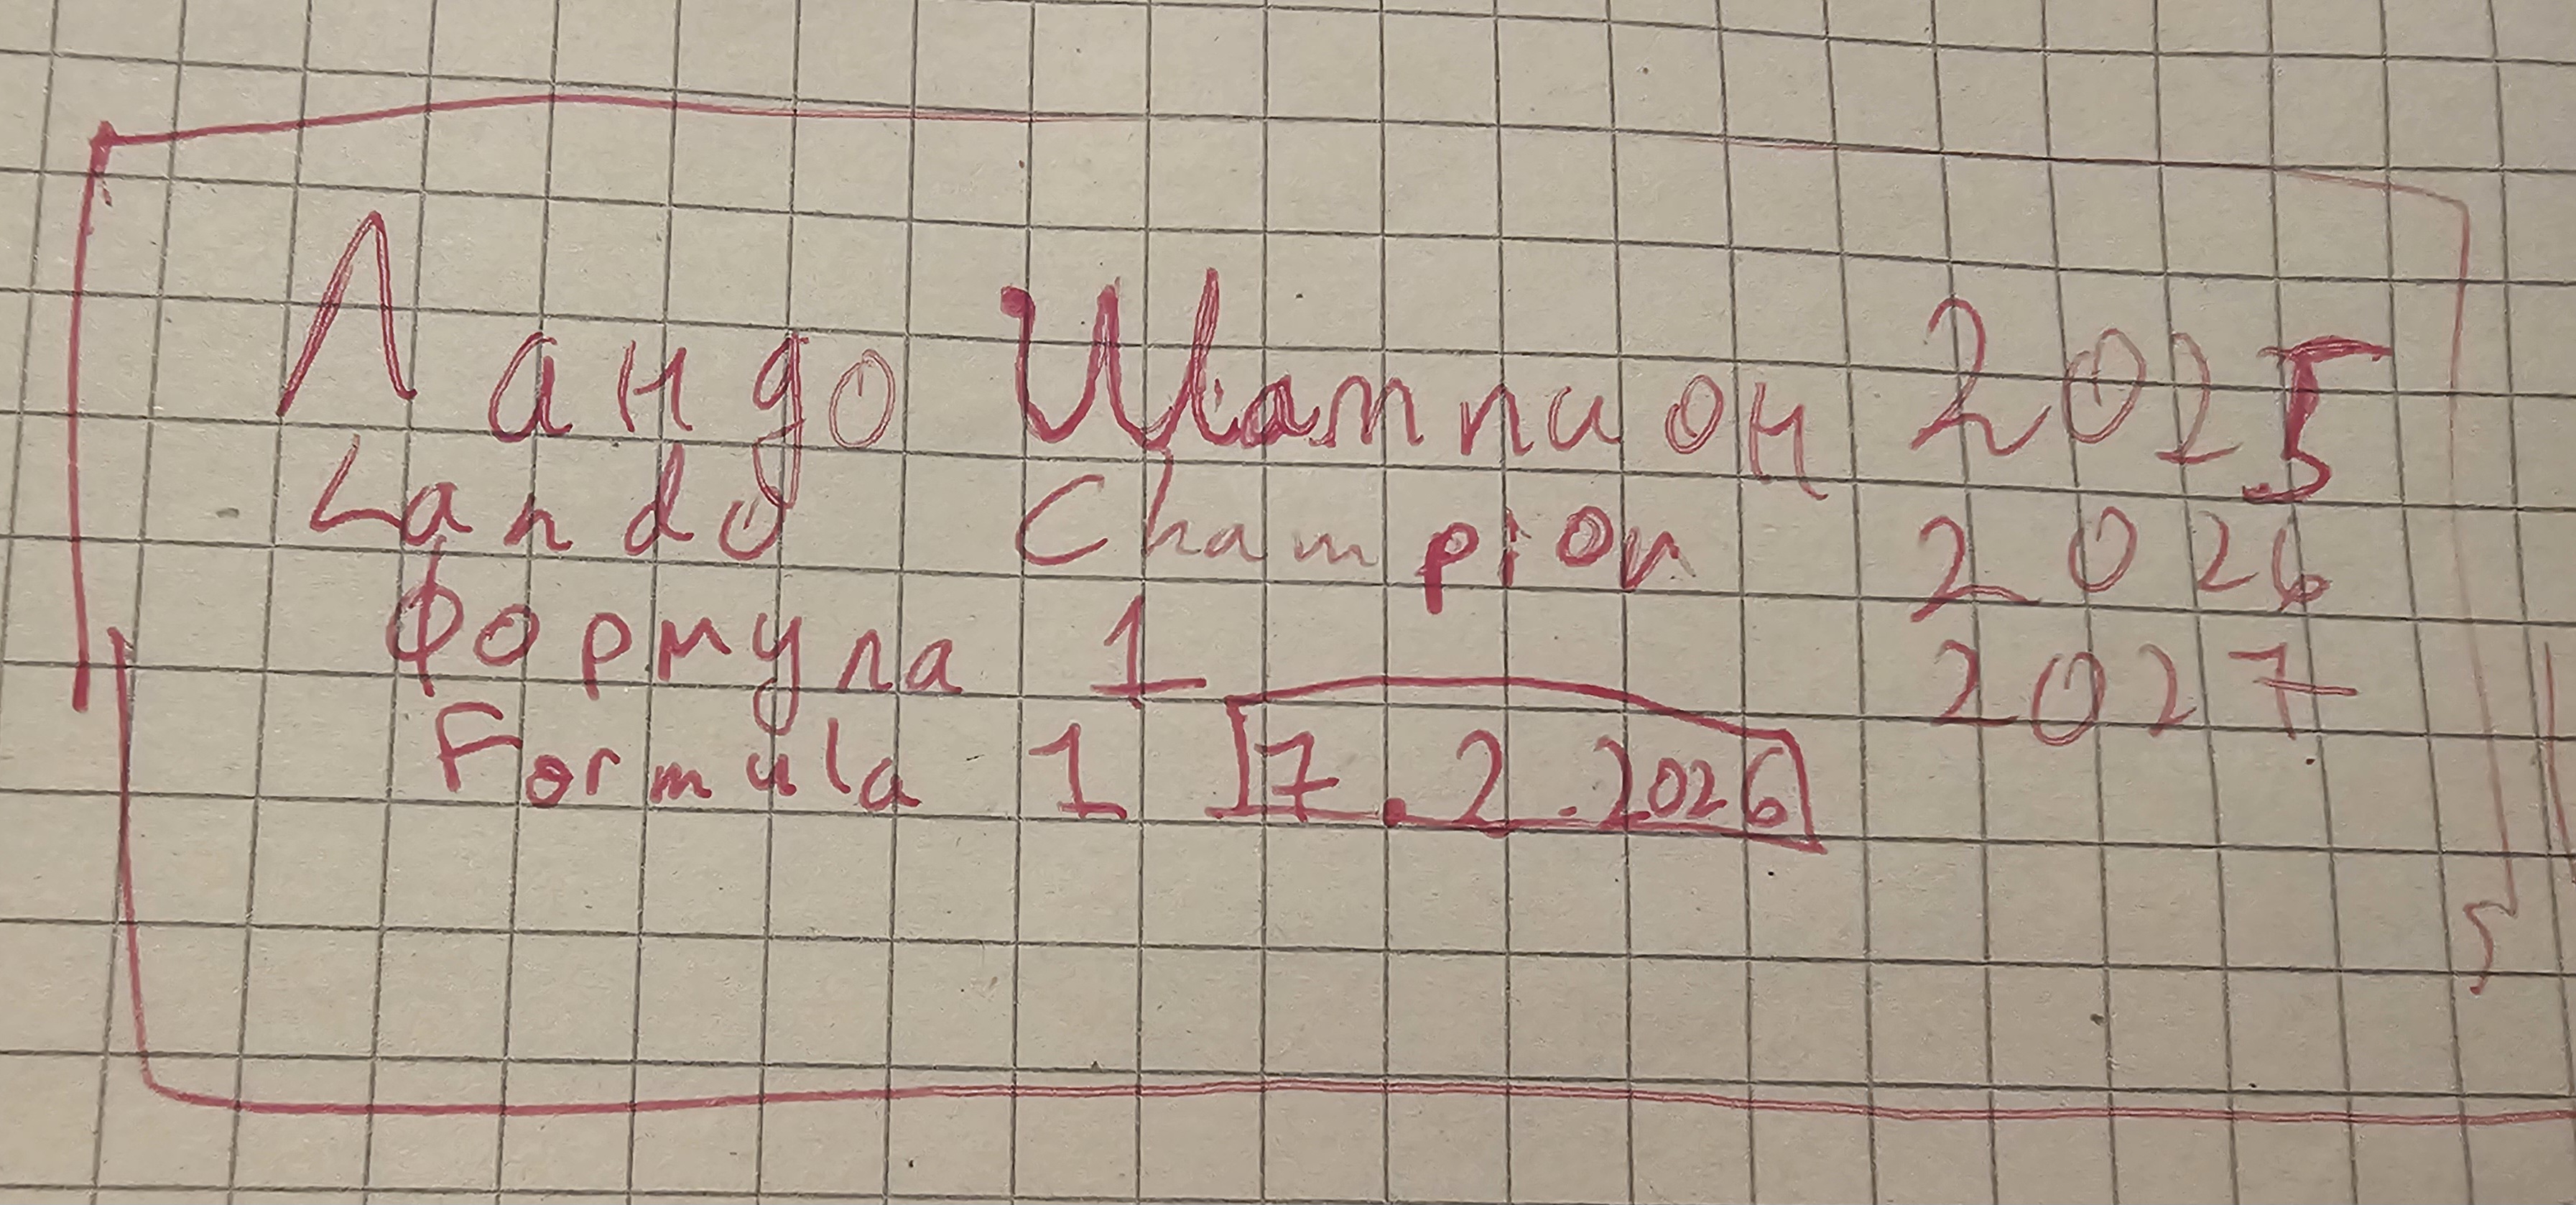 Ландо Шампион 2025
Lando Champion 2026
Формула 1 2027
Formula 1 17.2.2026